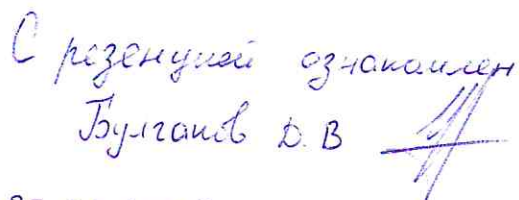 С резенцией ознакомлен
Булгаков Д.В